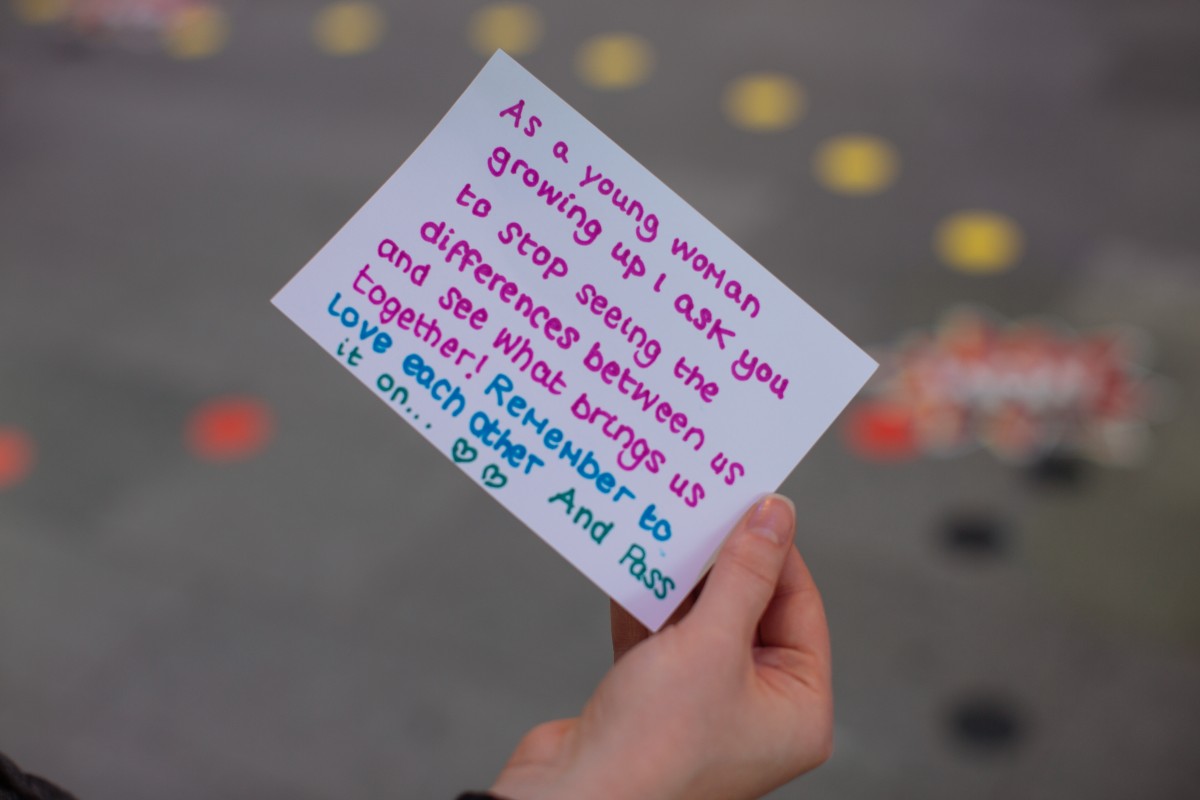 As a young woman
growing up I ask you
to stop seeing the
differences between us
and see what brings us
together! Remember to
Love each other And Pass
it on...